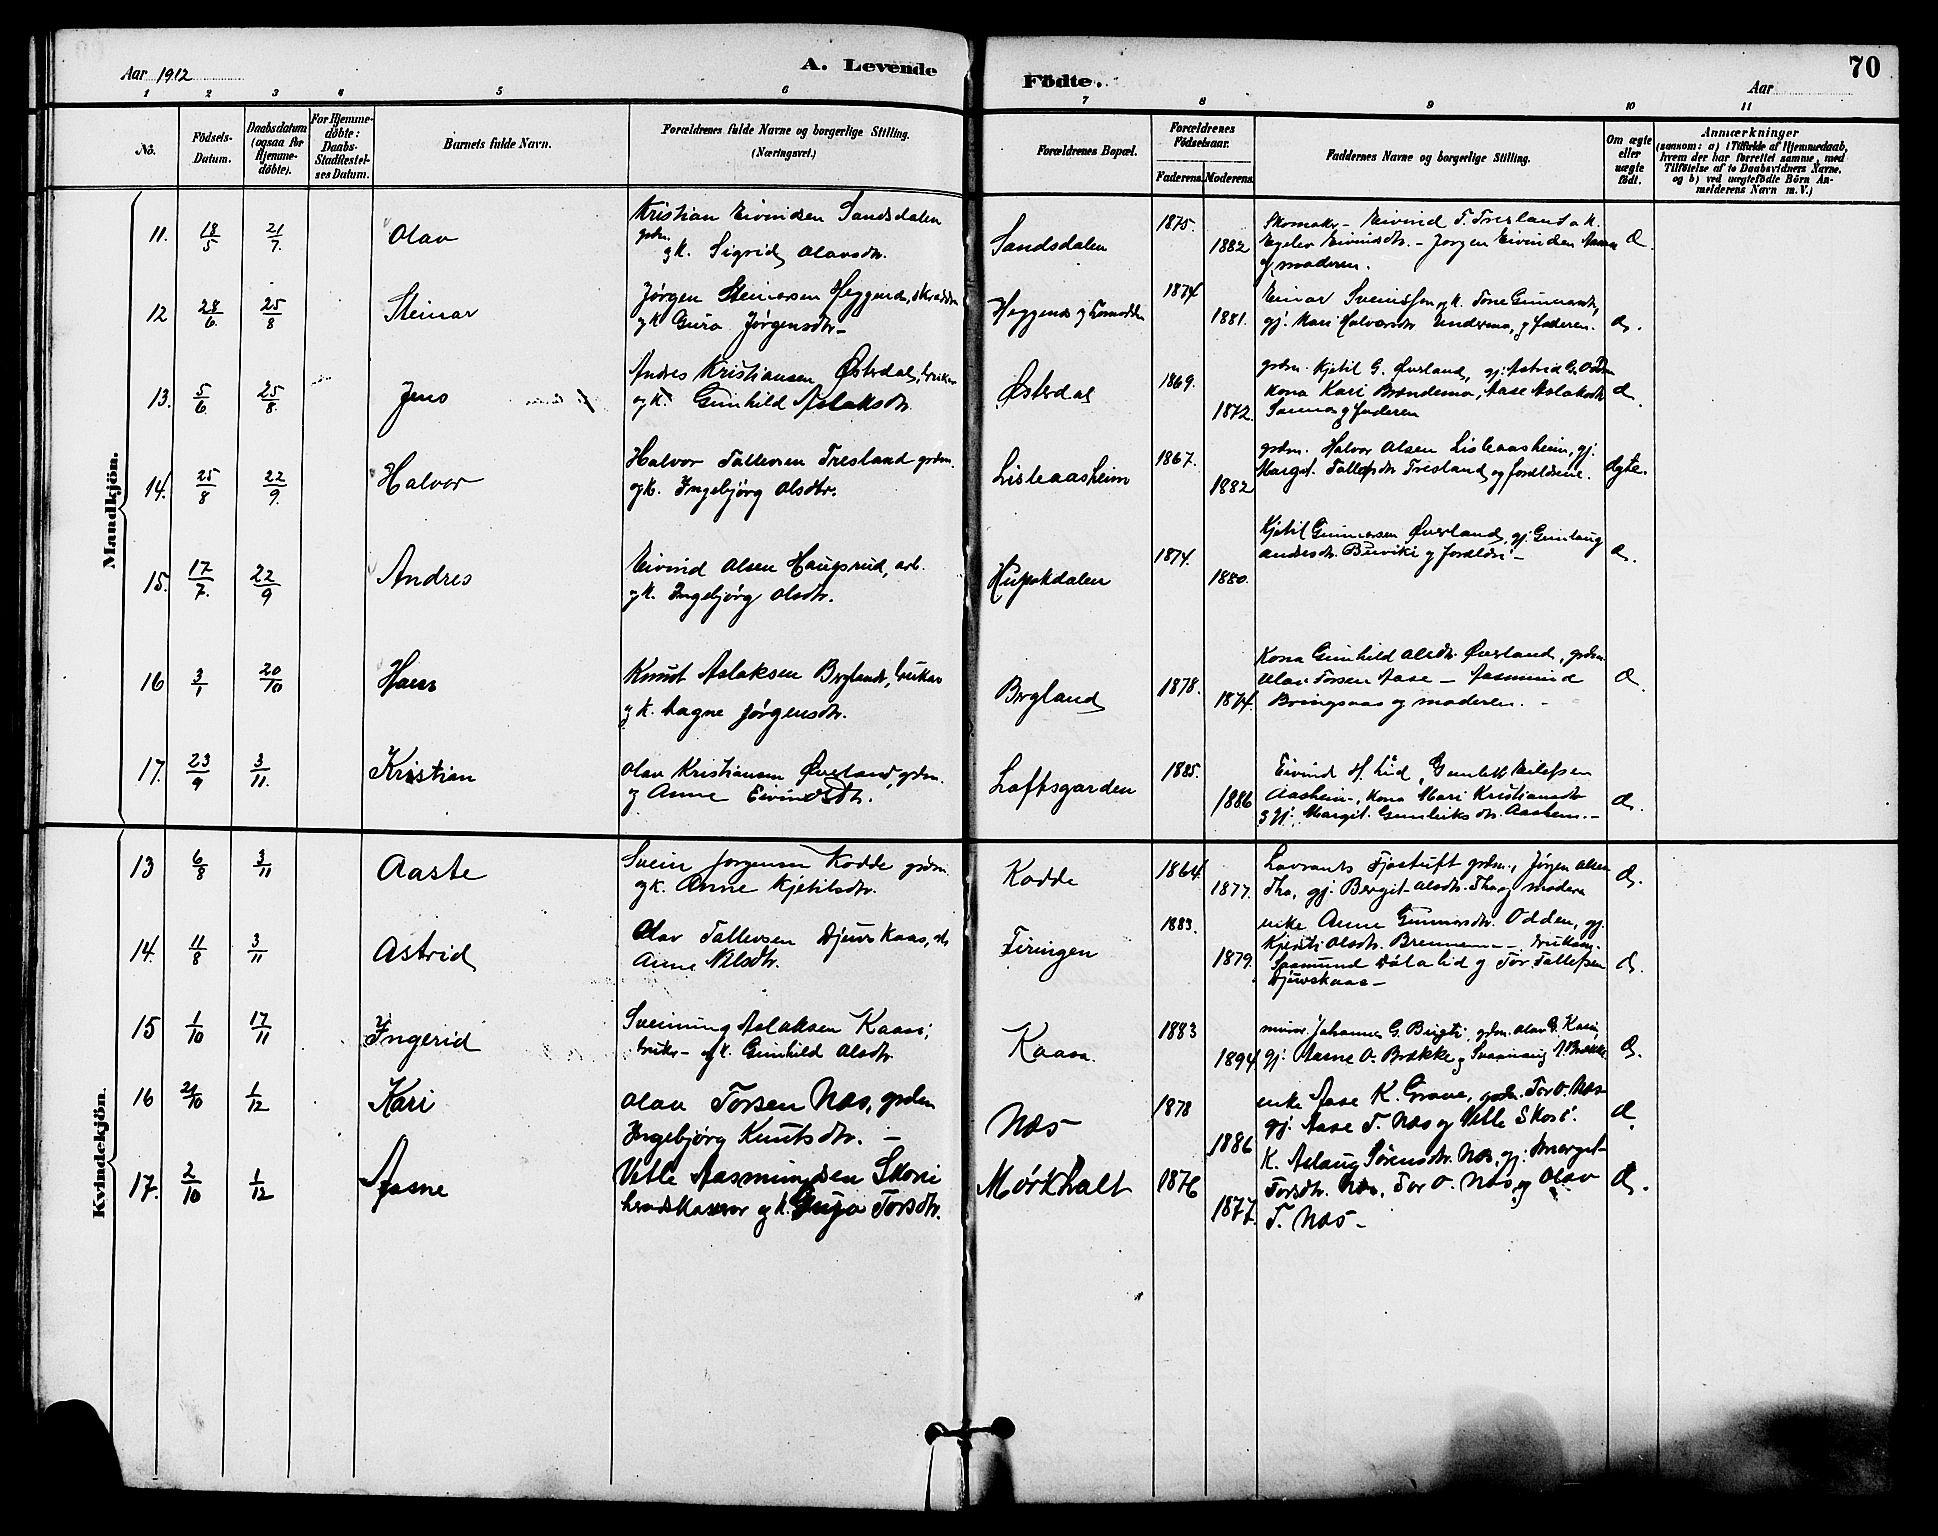 Aar 1912
A. Levende
Födte.
Aar
70
1 2 3 4 5 6 7 8 9 10 11
No.
Födsels-Datum.
Daabsdatum (ogsaa for Hjemme-döbte).
For Hjemme-döbte: Daabs-Stadfæstel-ses Datum.
Barnets fulde Navn.
Forældrenes fulde Navne og borgerlige Stilling.
(Næringsvei.)
Forældrenes Bopæl.
Forældrenes Födselsaar.
Faderens. Moderens.
Faddernes Navne og borgerlige Stilling.
Om ægte eller uægte födt.
Anmærkninger
(saasom: a) i Tilfælde af Hjemmedaab,
hvem der har forrettet samme, med
Tilföielse af to Daabsvidners Navne,
og b) ved uægtefödte Börn An-
melderens Navn m. V.)
Mandkjön.
11. 18/5 21/7. Olav
Kristian Eivindsen Sandsdalen
grdm.
og k. Sigrid Olavsdtr.
Sandsdalen 1875. 1882
Skomaker - Eivind T. Tresland o k.
Eivindsdtr. - Jørgen Eivinden
og moderen.
12 28/6. 25/8 Steinar
Jørgen Steinarsen Heggend,
og k Guro Jørgensdtr -
Heggend 1874 1881.
Einar Sveinsson og k. Tone Gunnarsdtr,
gj. Mari Halvorsdtr og faderen.
13. 5/6. 25/8. Jens
Andres Kristiansen Østerdal, bruker
og k. Gunhild Aslaksdtr.
Østerdal 1869. 1872.
grdm. Kjetil G. Øverland, gj. Astrid G. Odden
Kona Kari Aase Aslaksdtr
og faderen
14. 25/8 22/9. Halvor
Halvor Tallevsen Tresland grdm.
og k. Ingebjørg Olsdtr.
Lisleaasheim 1867. 1882
grdm. Halvor Olsen Lisleaasheim, gj.
Margit Tallefsdtr Tresland og forældrene. Ægte.
15. 17/7. 22/9 Andres
Eivind Olsen Haugsrud, arb.
og k. Ingebjørg Olsdtr.
1874. 1880.
Kjetil Gunnarsen Øverland, gj. Gunlaug
Andresdtr. og forældre -
16 3/1 20/10 Hans
Knut Aslaksen Bergland, bruker
og k. Jørgensdtr.
Bergland 1878. 1874.
Kona Gunhild Olsdtr. Øverland, grdm.
Olav Torsen Aase - Aasmund
Bringsaas og moderen. -
17. 23/9 3/11. Kristian
Olav Kristiansen Øverland, grdm.
og Anne Eivindsdtr.
Loftsgarden 1885. 1886
Eivind H. Lid,
Aasheim, Kona Mari Kristiansdtr
og gj. Margit Gunleiksdtr. Aasheim. -
Kvindekjön.
13 6/8 3/11 Aaste
Svein Jørgensen Kodde grdm.
og k. Anne Kjetilsdtr.
Kodde 1864. 1877.
Lavrants Tjostuft grdm., Jørgen Olsen
Tho, gj. Bergit Olsdtr. Tho og modera
14. 11/8 3/11 Astrid
Olav Tallevsen Djuvskaas,
Anne Nilsdtr.
Tiringen 1883. 1879.
enke Anne Gunnarsdtr. Odden, gj.
Olsdtr.
Lid og Tor Tallefsen
Djuvskaas -
15 1/10 17/11 Ingerid
Sveinung Aslaksen Kaasa;
bruker - og k. Gunhild Olsdtr
Kaasa. 1883 1894
Johannes G.
gj. Aasne O. Brække og Sveinung
16 21/10 1/12 Kari
Olav Torsen Næs, grdm
Ingebjørg Knutsdtr. -
Næs 1878 1886
enke Aase K. Grave, grdm. Tor O. Næs
gj. Aase T. Næs og Vetle Skori.
17. 2/10 1/12 Aasne
Vetle Aasmundsen Skori
heradskasserer og k. Torsdtr.
Mørkhalt 1876 1877.
K. Aslaug Sørensdtr. Næs, gj. Marget
Torsdtr. Næs, Tor O. Næs og Olav
T. Næs -